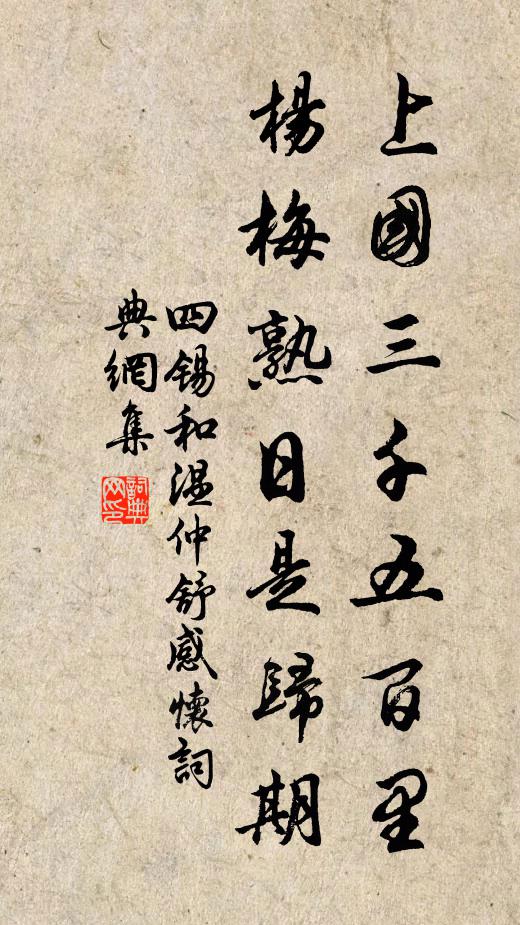 上國三千五百里
楊梅熟日是歸期
四錫和溫仲舒感懷詞
典網集
詞典
网印